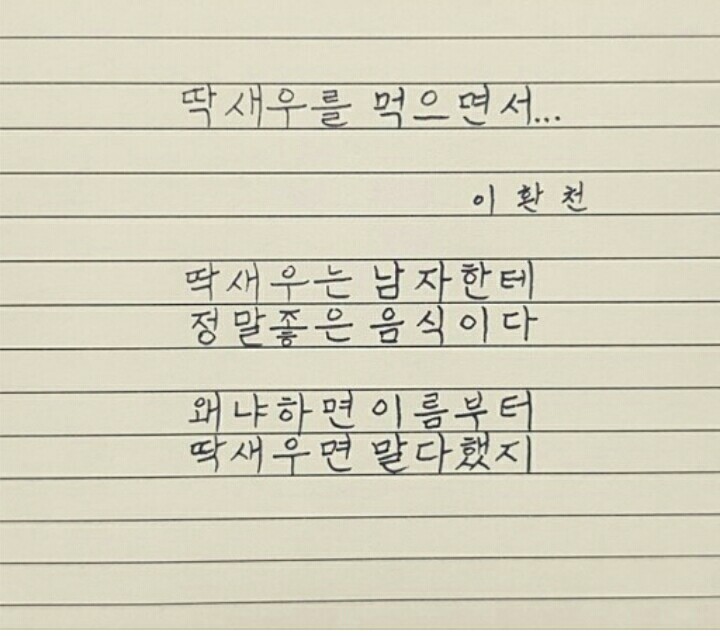 딱새우를 먹으면서...
이환천
딱새우는 남자한테
정말좋은 음식이다
왜냐하면 이름부터
딱새우면 말다했지